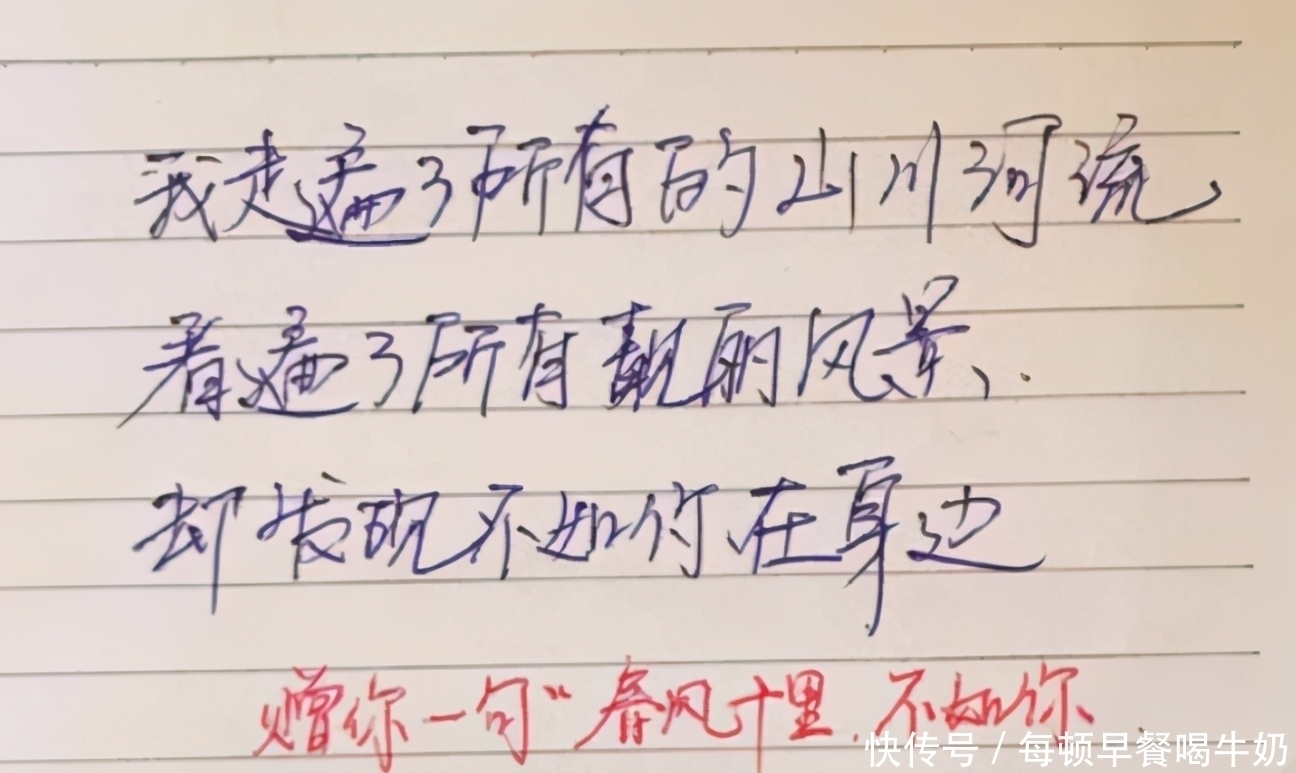 我走遍了所有的山川河流、
看遍了所有靓丽风景、.
却发现不如你在身边
赠你一句“春风十里.不如你
快传号/每顿早餐喝牛奶